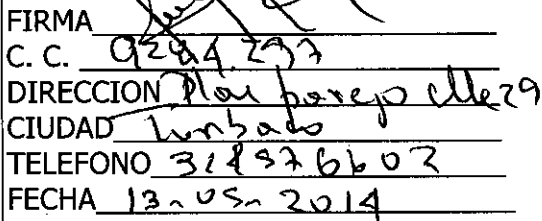 FIRMA
C. C. 9284.297
DIRECCION Plan parejo clle 29
CIUDAD Turbaco
TELEFONO 318376603
FECHA 13-05-2014